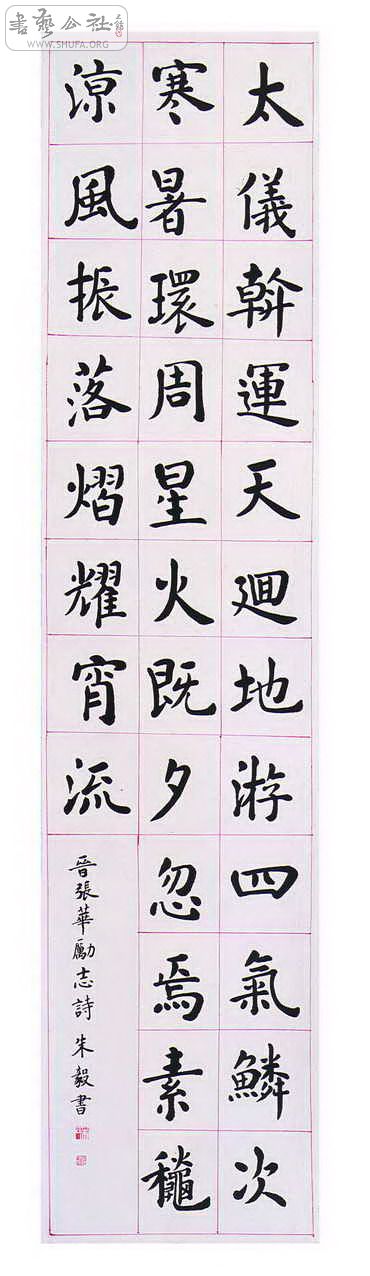 書藝公社
WWW.SHUFA.ORG
太儀斡運天迴地游四氣鱗次
寒暑環周星火既夕忽焉素龝
涼風振落熠耀宵流
晉張華勵志詩 朱毅書